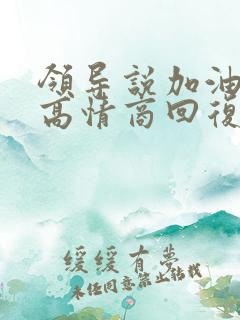 领导説加油
高情商回復
緩緩有夢
未经同意禁止转载